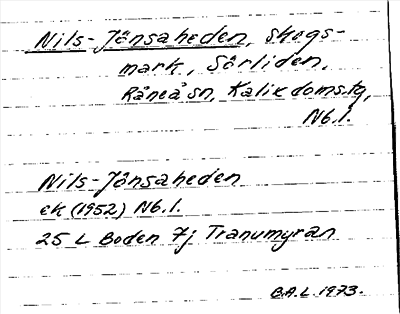 Nils-Jånsaheden, skogs-
mark, Sörliden,
Råneå sn, Kalix doms.tg,
Nb.l.
Nils-Jånsaheden
ek (1952) Nb.l.
25 L Boden 7j Tranumyran
B.A.L. 1973.